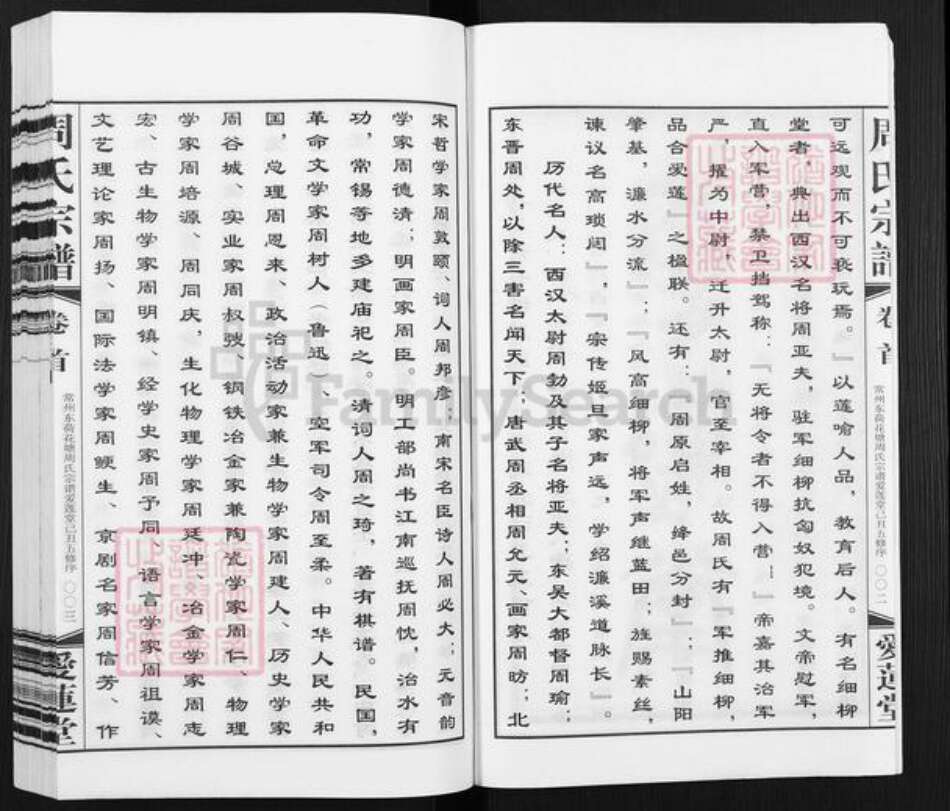 周氏宗谱
卷首
常州东荷花塘周氏宗谱爱莲堂己丑五修序 〇〇二
愛蓮堂
可远观而不可亵玩焉。”以莲喻人品，教育后人。有名细柳
堂者，典出西汉名将周亚夫，驻军细柳抗匈奴犯境。文帝慰军，
直入军营，禁卫挡驾称：『无将令者不得入营！』帝嘉其治军
严，擢为中尉，迁升太尉，官至宰相。故周氏有『军推细柳，
品合爱莲』之楹联。还有：『周原启姓，绛邑分封』；『山阳
肇基，濂水分流』；『风高细柳，将军声继蓝田；旌赐素丝，
谏议名高琐闼』，『宗传姬旦家声远，学绍濂溪道脉长』。
历代名人：西汉太尉周勃及其子名将亚夫；东吴大都督周瑜；
东晋周处，以除三害名闻天下；唐武周丞相周允元、画家周昉；北
宋哲学家周敦颐、词人周邦彦；南宋名臣诗人周必大；元音韵
学家周德清；明画家周臣。明工部尚书江南巡抚周忱，治水有
功，常锡等地多建庙祀之。清词人周之琦，著有棋谱。民国，
革命文学家周树人（鲁迅）、空军司令周至柔。中华人民共和
国，总理周恩来、政治活动家兼生物学家周建人、历史学家
周谷城、实业家周叔弢、钢铁冶金家兼陶瓷学家周仁、物理
学家周培源、周同庆，生化物理学家周廷冲、冶金学家周志
宏、古生物学家周明镇、经学史家周予同、语言学家周祖谟、
文艺理论家周扬、国际法学家周鲠生、京剧名家周信芳、作
周氏宗譜
卷首
常州东荷花塘周氏宗谱爱莲堂己丑五修序 〇〇三
愛蓮堂
FamilySearch